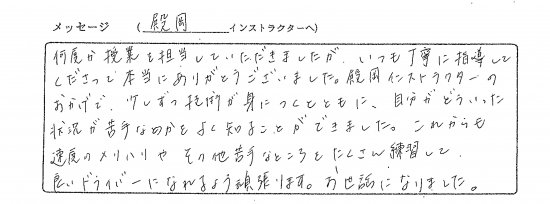 メッセージ （ 殿岡 インストラクターへ）
何度か授業を担当していただきましたが、いつも丁寧に指導して
くださって本当にありがとうございました。殿岡インストラクターの
おかげで、少しずつ技術が身につくとともに、自分がどういった
状況が苦手なのかをよく知ることができました。これからも
速度のメリハリや その他苦手なところをたくさん練習して、
良いドライバーになれるよう頑張ります。お世話になりました。